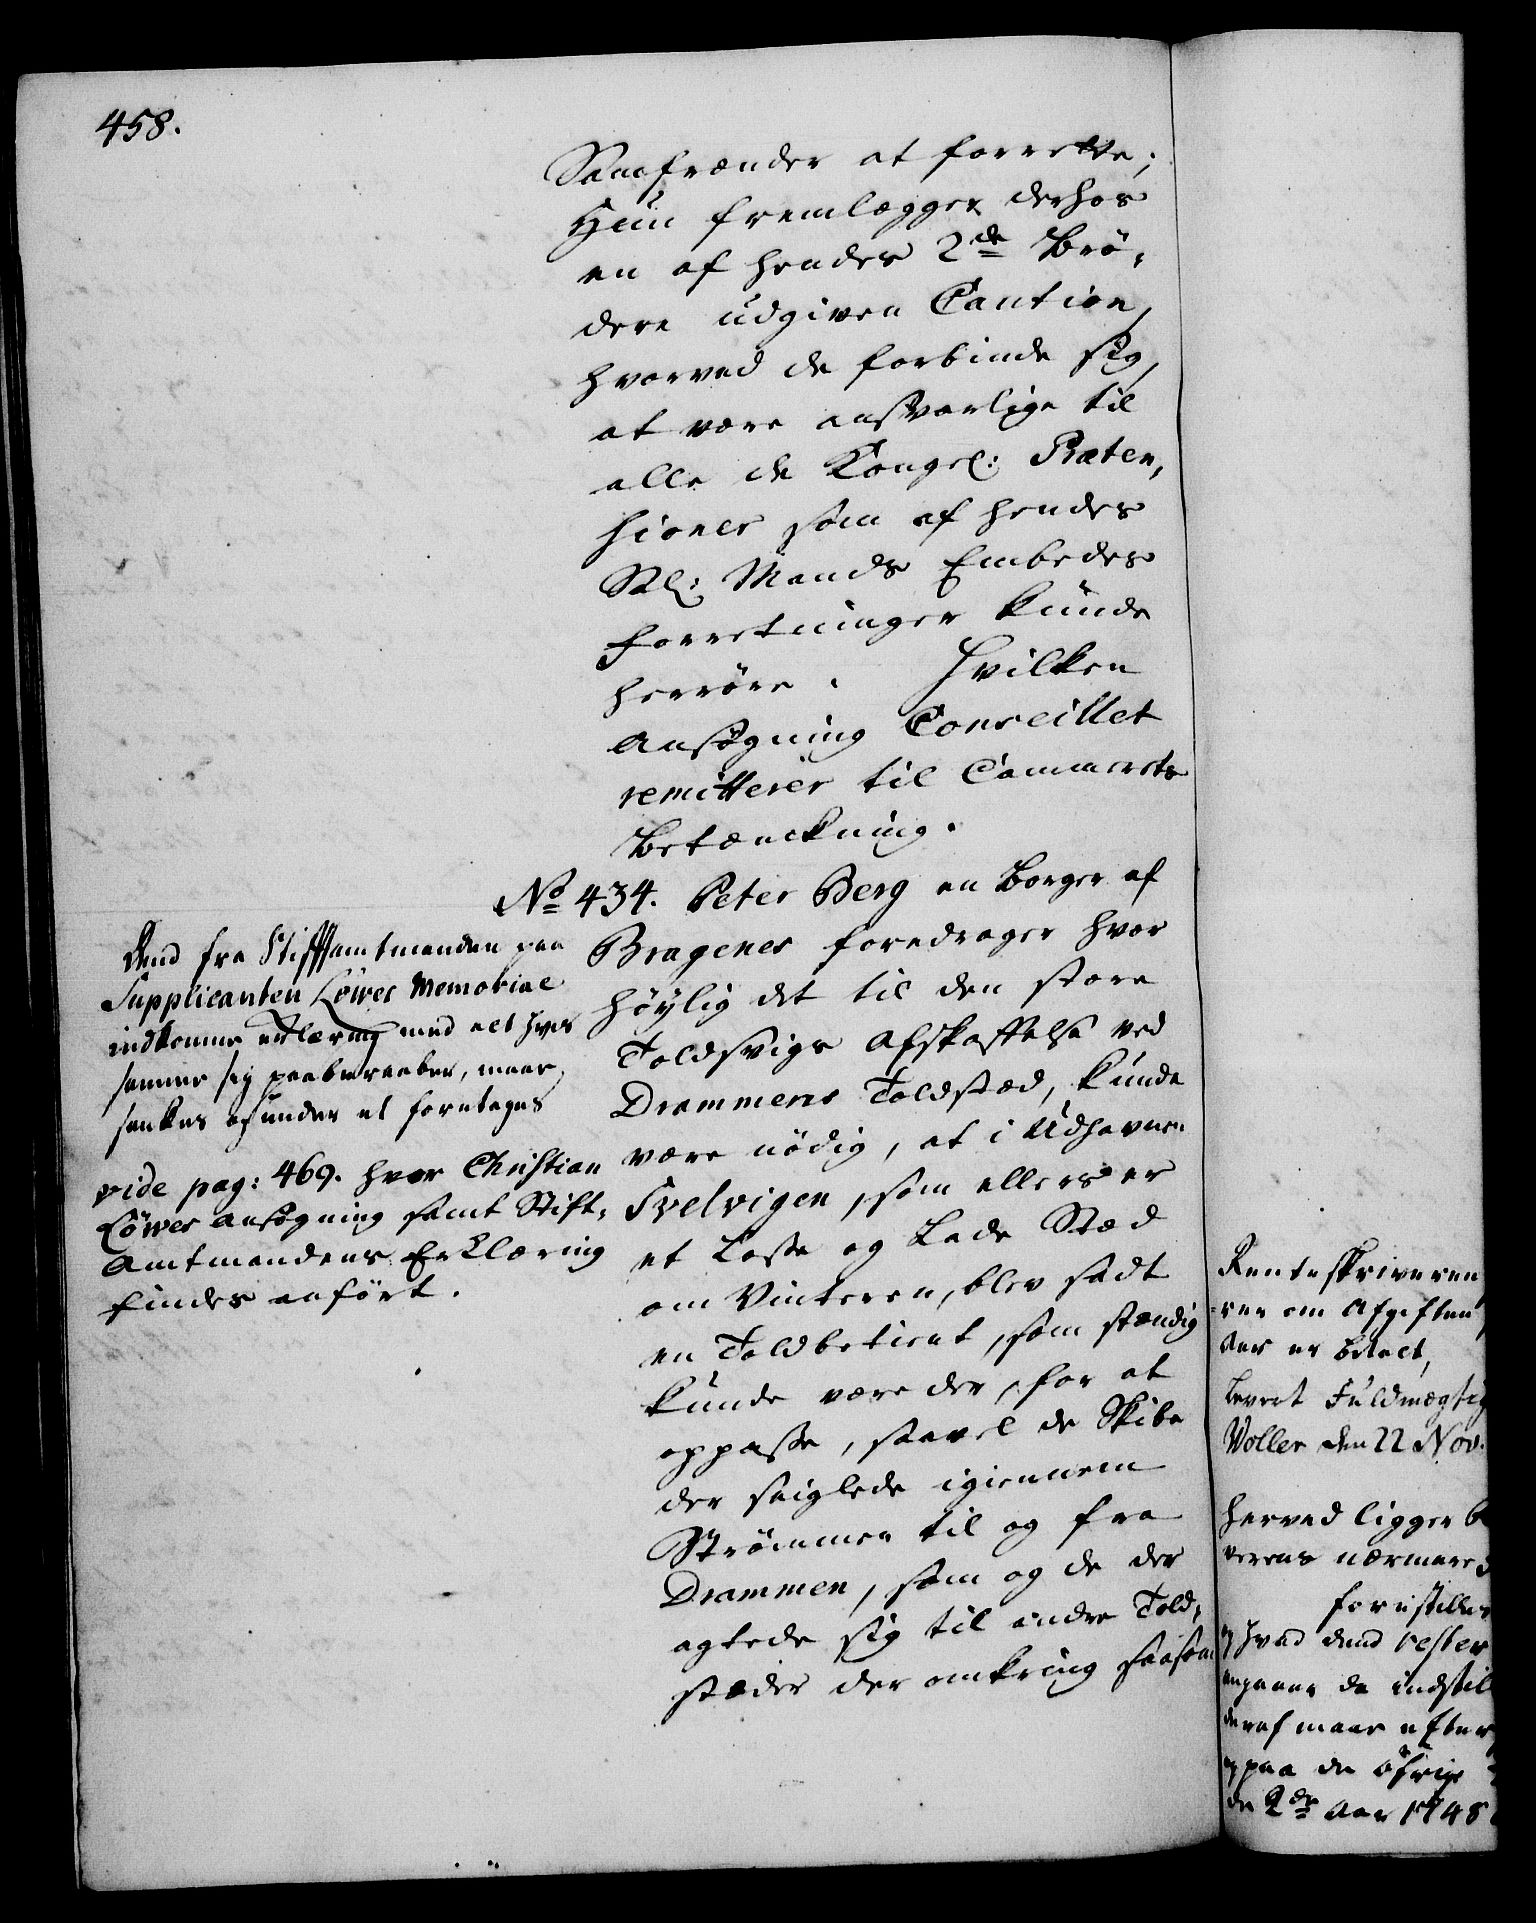 458.
Samfrænder at forrette;
Hun fremlægger derhos
en af hendes 2de Brö,
dere udgiven Caution,
hvorved de forbinde sig,
at være ansvarlige til
alle de Kongel: Præten,
sioner som af hendes
Sal: Mands Embedes
Forretninger kunde
herröre. Hvilken
Ansögning Conseillet
remitterer til Cammerets
Betænckning.
No 434. Peter Berg en Borger af
Bragenes foredrager hvor
höylig det til den store
Toldsvigs Afskaffelse ved
Drammens Toldstæd, kunde
være nödig, at i Udhavnen
Svelvigen, som ellers er
et Losse og Lade Stæd
om Vinteren, blev sadt
en Toldbetient, som stændig
kunde være der, for at
oppasse, saavel de Skibe
der seiglede igiennem
Strömmen til og fra
Drammen, som og de der
agtede sig til andre Told,
stæder der omkring saasom
Dend fra Stifftamtmanden paa
Supplicanten Löwes Memorial
indkomne erklæring med alt hves
samme sig paaberaaber, maae
vide pag: 469. hvor Christian
Löwes Ansögning samt Stift,
Amtmandens Erklæring
findes anfört.
Renteskriveren
om Afgiften
der er betalt,
levert Fuldmægtig
Woller den 22 Nov.
herved ligger
nærmere
forestilles
hvad dend rester
angaaer da indstil
deraf maae efter
paa de öfrige
de 2de Aar 1748